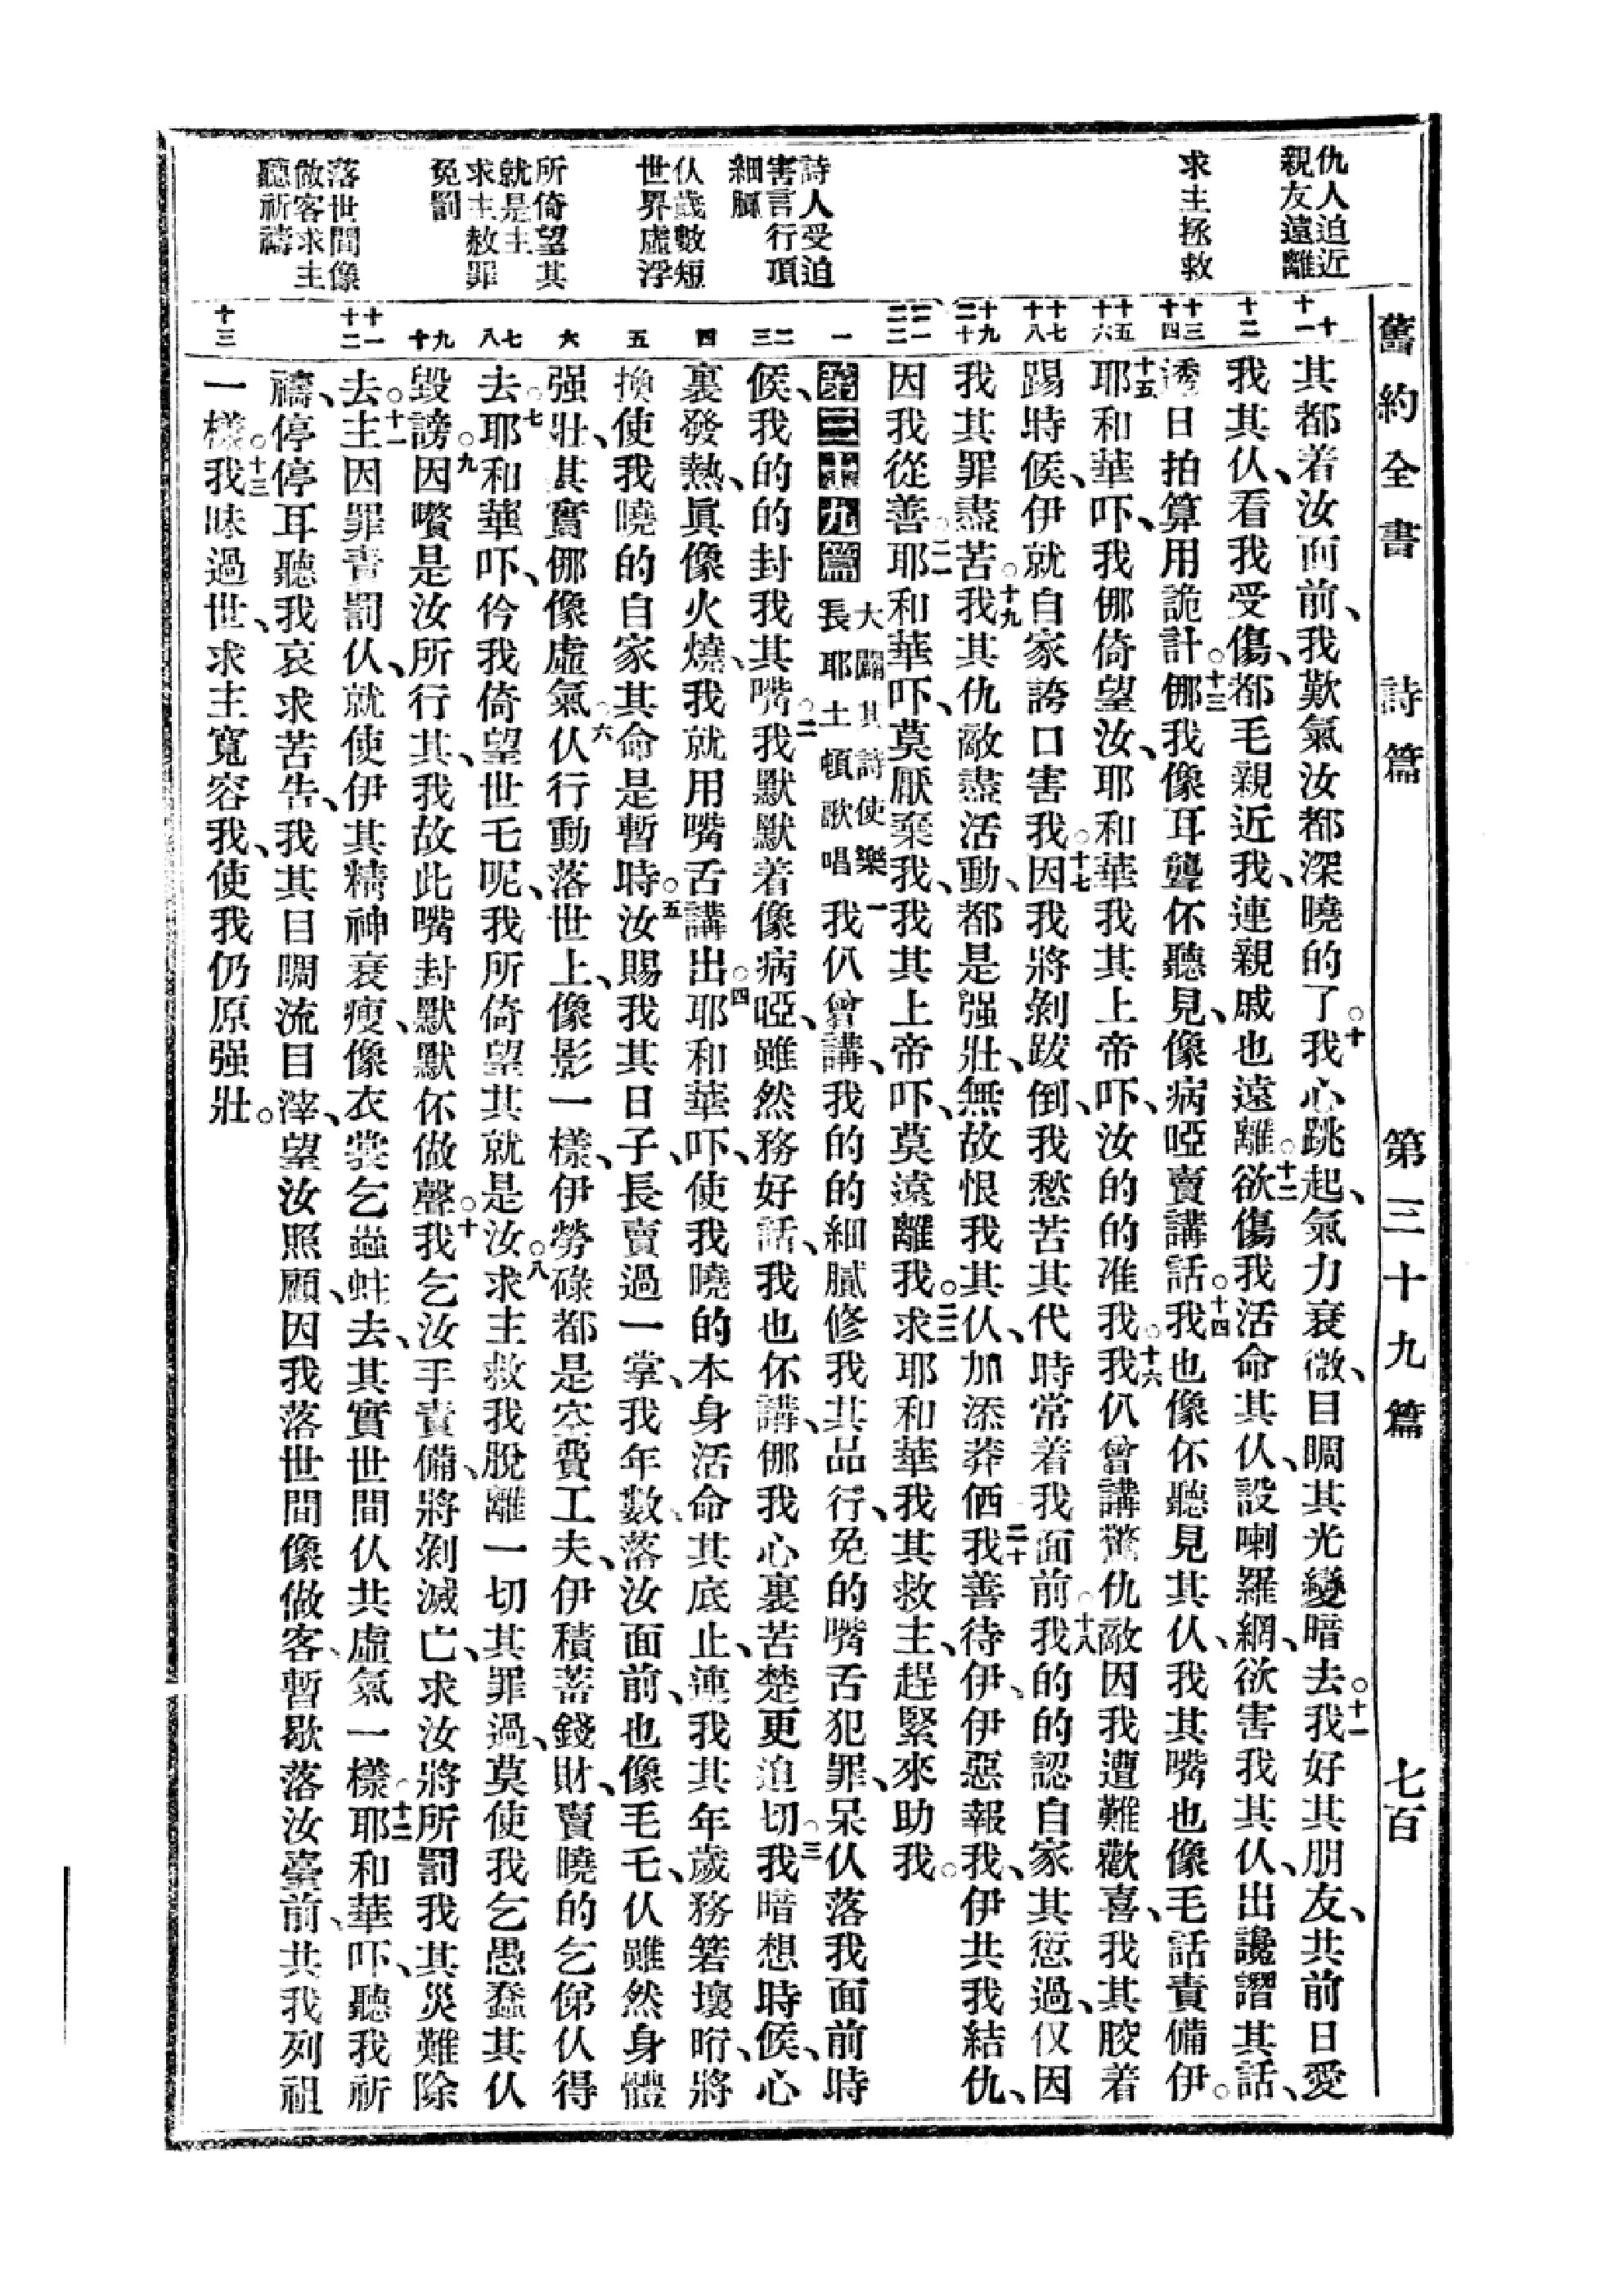 舊約全書 詩篇 第三十九篇 七百
仇人迫近
親友遠離
求主拯救
詩人受迫
害言行項
細膩
仈歲數短
世界虛浮
所倚望其
就是主
求主赦罪
免罰
落世間像
做客求主
聽祈禱
十
十一
十二
十三
十四
十五
十六
十七
十八
十九
二十
二一
二二
一
二
三
四
五
六
七
八
九
十
十一
十二
十三
其都着汝面前、我歎氣汝都深曉的了。十我心跳起、氣力衰微、目睭其光變暗去。十一我好其朋友、共前日愛
我其仈、看我受傷、都毛親近我、連親戚也遠離。十二欲傷我活命其仈、設喇羅網、欲害我其仈、出讒譖其話、
透日拍算用詭計。十三㑚我像耳聾伓聽見、像病啞賣講話。十四我也像伓聽見其仈、我其嘴也像毛話責備伊。
十五耶和華吓、我㑚倚望汝、耶和華我其上帝吓、汝的的准我。十六我仈曾講、驚仇敵因我遭難歡喜、我其骹着
踢時候、伊就自家誇口害我。十七因我將剝跋倒、我愁苦其代時常着我面前。十八我的的認自家其愆過、仅因
我其罪盡苦。十九我其仇敵盡活動、都是强壯、無故恨我其仈、加添莽価。二十我善待伊、伊惡報我、伊共我結仇、
因我從善。二一耶和華吓、莫厭棄我、我其上帝吓、莫遠離我。二二我求耶和華我其救主、趕緊來助我。
第三十九篇 大闢其詩使樂長耶土頓歌唱 一我仈曾講、我的的細膩修我其品行、免的嘴舌犯罪、呆仈落我面前時
候、我的的封我其嘴。二我默默着像病啞、雖然務好話、我也伓講、㑚我心裏苦楚更迫切。三我暗想時候、心
裏發熱、眞像火燒、我就用嘴舌講出。四耶和華吓、使我曉的本身活命其底止、連我其年歲務箬壞𣍐、將
換使我曉的自家其命是暫時。五汝賜我其日子、長賣過一掌、我年數落汝面前、也像毛乇、仈雖然身體
强壯、其實㑚像虛氣。六仈行動落世上、像影一樣、伊勞碌都是空費工夫、伊積蓄錢財、賣曉的乞㑚仈得
去。七耶和華吓、仱我倚望世乇呢、我所倚望其就是汝。八求主救我脫離一切其罪過、莫使我乞愚蠢其仈
毀謗。九因嚽是汝所行其、我故此嘴封默默伓做聲。十我乞汝手責備、將剝滅亡、求汝將所罰我其災難除
去。十一主因罪責罰仈、就使伊其精神衰瘦、像衣裳乞蟲蛀去、其實世間仈共虛氣一樣。十二耶和華吓、聽我祈
禱、停停耳聽我哀求苦告、我其目睭流目滓、望汝照顧、因我落世間像做客、暫歇落汝臺前、共我列祖
一樣。十三我昧過世、求主寬容我、使我仍原强壯。